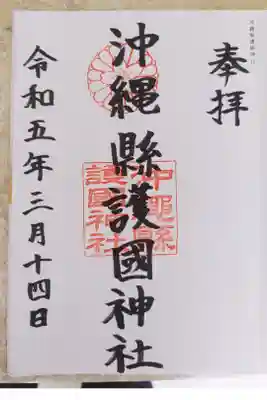 奉拝
沖縄縣護國神社
沖縄縣
護國神社
令和五年三月十四日